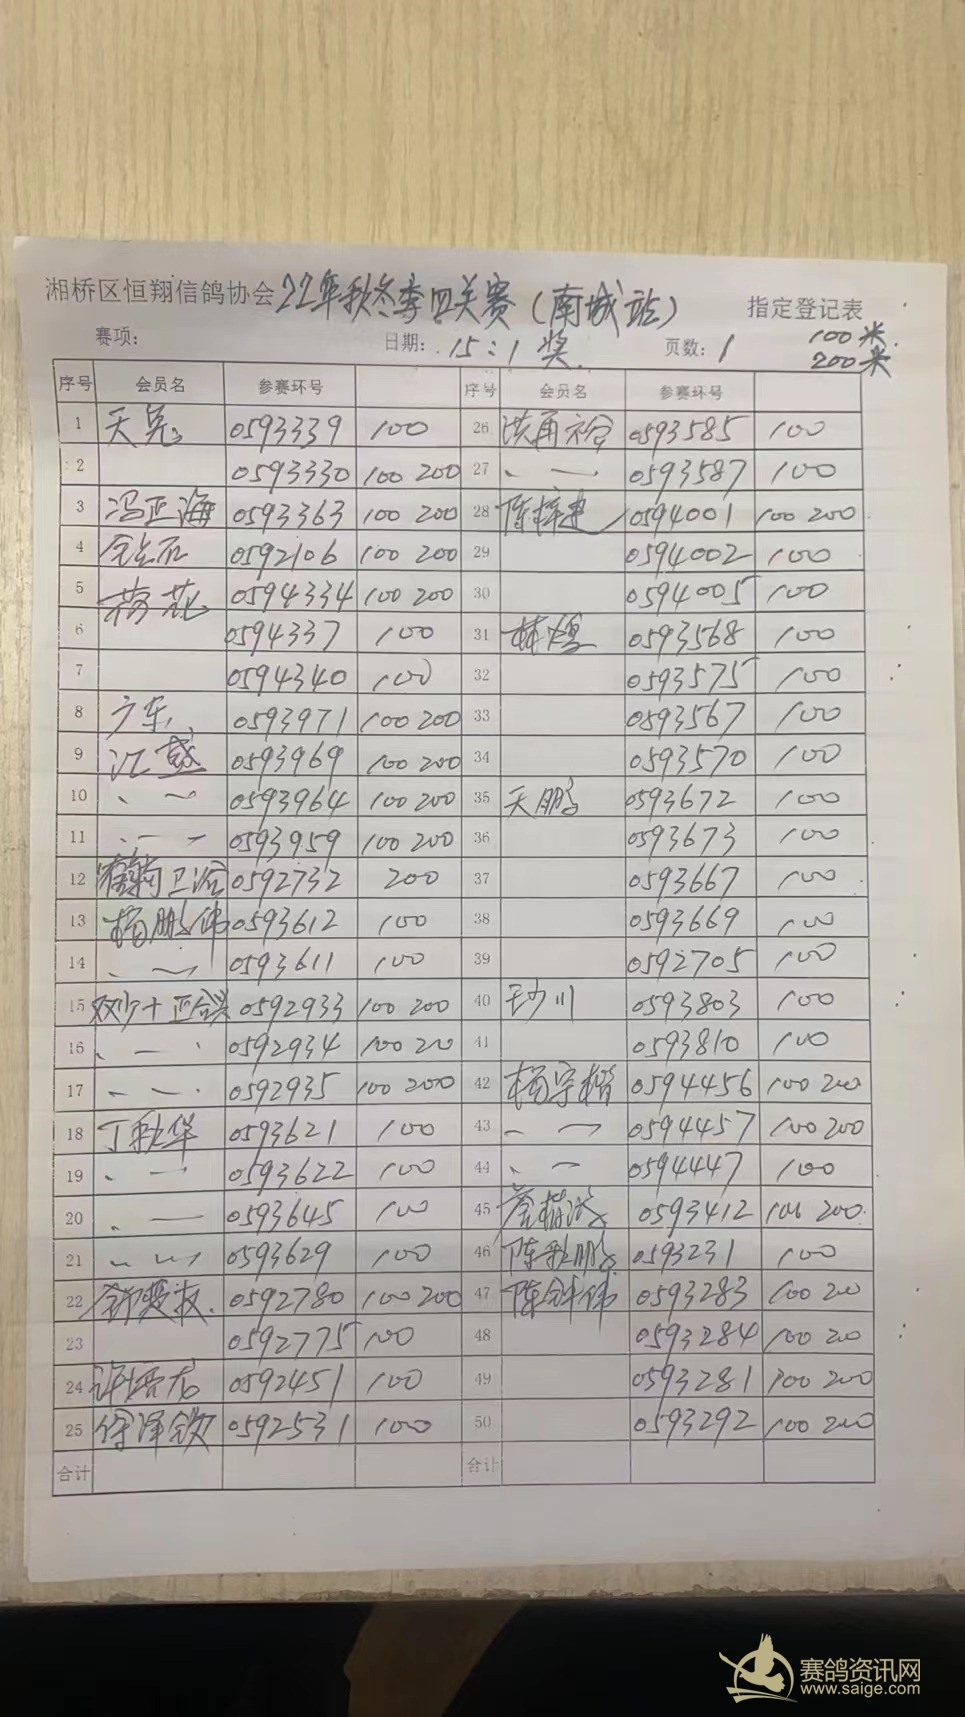 湘桥区恒翔信鸽协会 22年秋冬季四关赛(南城站) 指定登记表
赛项: 日期: 15:1奖. 页数: 1 100米.
200米
序号 会员名 参赛环号 序号 会员名 参赛环号
1 天 0593339 100 26 洪再裕 0593585 100
2 0593330 100 200 27 、一 0593587 100
3 冯正海 0593363 100 200 28 陈梓建 0594001 100 200
4 钻石 0592106 100 200 29 0594002 100
5 梅花 0594334 100 200 30 0594005 100
6 0594337 100 31 林煌 0593568 100
7 0594340 100 32 0593575 100
8 广东 0593971 100 200 33 0593567 100
9 汇盛 0593969 100 200 34 0593570 100
10 、一 0593964 100 200 35 天鹏 0593672 100
11 、一 0593959 100 200 36 0593673 100
12 卫浴 0592732 200 37 0593667 100
13 杨鹏伟 0593612 100 38 0593669 100
14 、一 0593611 100 39 0592705 100
15 双少十正合兴 0592933 100 200 40 川 0593803 100
16 、一 0592934 100 20 41 0593810 100
17 、一 0592935 100 200 42 杨宇楷 0594456 100 200
18 丁秋华 0593621 100 43 、一 0594457 100 200
19 、一 0593622 100 44 、一 0594447 100
20 、一 0593645 100 45 楷 0593412 100 200
21 、一 0593629 100 46 陈秋鹏 0593231 100
22 0592780 100 200 47 陈钟伟 0593283 100 20
23 0592775 100 48 0593284 100 20
24 许 0592451 100 49 0593281 100 200
25 徐泽 0592531 100 50 0593292 100 200
合计 合计
赛鸽资讯网
www.saige.com